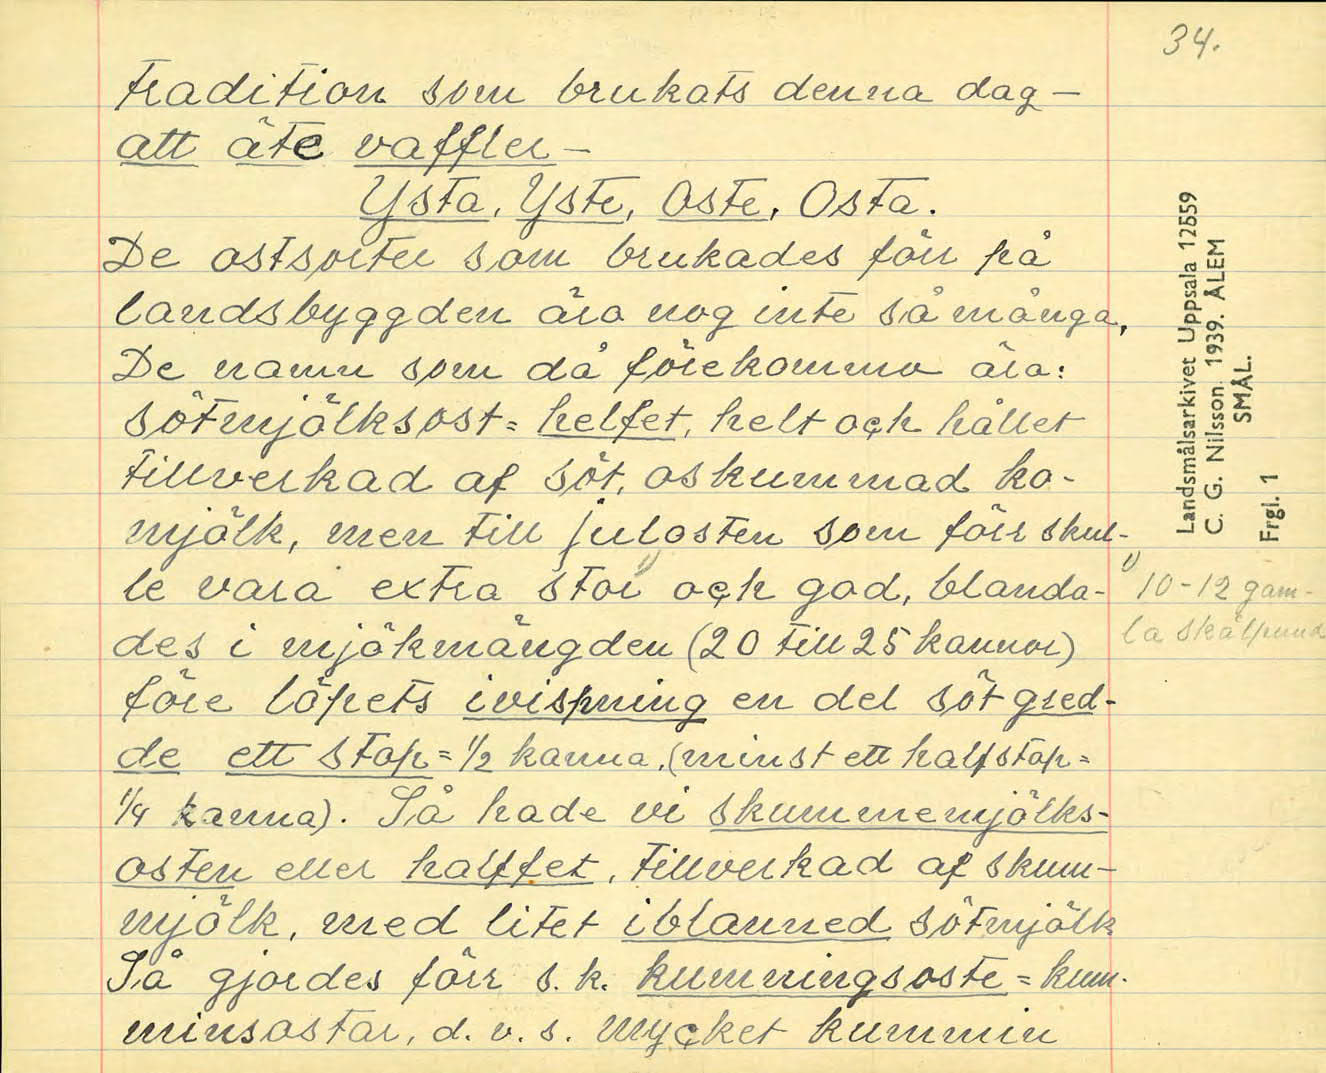 34.
tradition som brukats denna dag –
att äte vaffler –
Ysta, Yste, Oste, Osta.
De ostsorter som brukades förr på
landsbyggden äro nog inte så många,
De namn som då förekommo äro:
sötmjölksost = helfet, helt och hållet
tillverkad af söt, oskummad ko-
mjölk, men till julosten som förr skul-
le vara extra stor 1) och god, blanda-
des i mjökmängden (20 till 25 kannor)
före löpets ivispning en del söt gred-
de ett stop = 1/2 kanna, (minst ett halfstop =
1/4 kanna). Så hade vi skummemjölks-
osten eller halffet, tillverkad af skum-
mjölk, med litet iblanned sötmjölk
Så gjordes förr s. k. kumningsoste = kum-
minsostar, d. v. s. mycket kummin
1) 10-12 gam-
la skålpund
Landsmålsarkivet Uppsala 12559
C. G. Nilsson. 1939. ÅLEM
SMÅL.
Frgl. 1